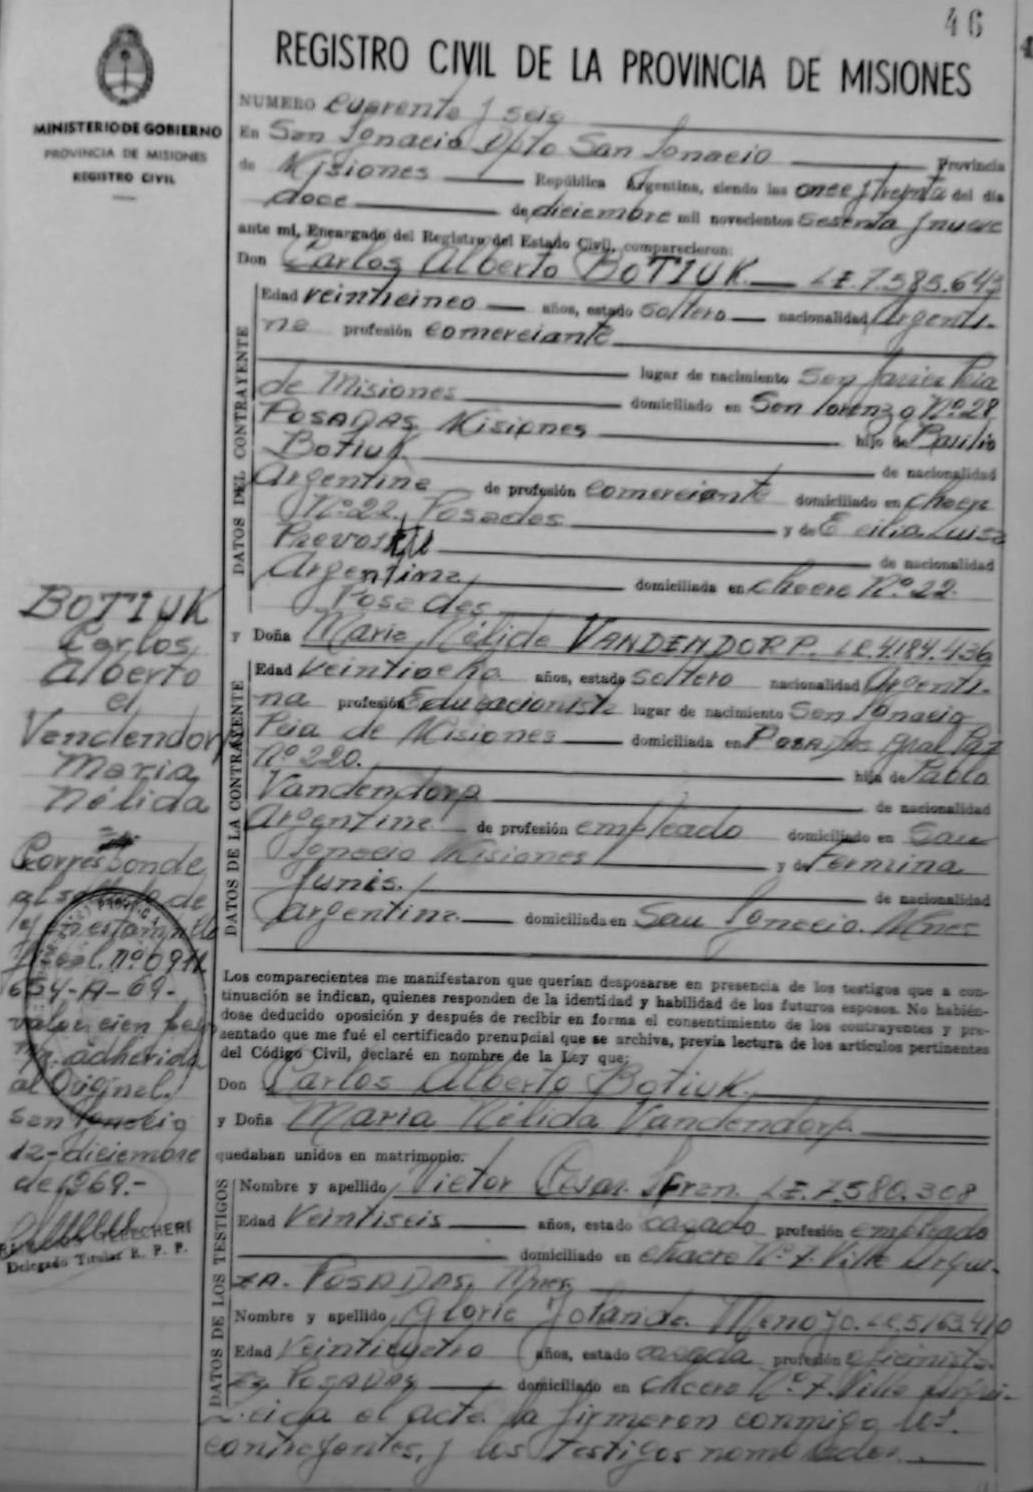 46
REGISTRO CIVIL DE LA PROVINCIA DE MISIONES
MINISTERIO DE GOBIERNO
PROVINCIA DE MISIONES
REGISTRO CIVIL
NUMERO cuarenta y seis
En San Ignacio Dpto San Ignacio Provincia
de Misiones República Argentina, siendo las once y treinta del día
doce de diciembre mil novecientos sesenta y nueve
ante mi, Encargado del Registro del Estado Civil, comparecieron:
Don Carlos Alberto BOTIUK L.E.7.585.643
DATOS DEL CONTRAYENTE
Edad veinticinco años, estado soltero nacionalidad Argenti-
na profesión comerciante
lugar de nacimiento San Javier Pcia
de Misiones domiciliado en San Lorenzo Nº28
POSADAS Misiones hijo de Basilio
Botiuk de nacionalidad
Argentina de profesión comerciante domiciliado en chacra
Nº22. Posadas y de Luisa
de nacionalidad
Argentina domiciliada en chacra Nº22.
Posadas
y Doña Maria Nélida VANDENDORP. L.C.4.184.436
DATOS DE LA CONTRAYENTE
Edad veintiocho años, estado soltero nacionalidad Argenti-
na profesión Educacionista lugar de nacimiento San Ignacio
Pcia de Misiones domiciliada en POSADAS Gral Paz
Nº220. hija de Pablo
Vandendorp de nacionalidad
Argentina de profesión empleado domiciliado en San
Ignacio Misiones y de Fermina
Junis. de nacionalidad
argentina domiciliada en San Ignacio. Mnes
Los comparecientes me manifestaron que querían desposarse en presencia de los testigos que a con-
tinuación se indican, quienes responden de la identidad y habilidad de los futuros esposos. No habién-
dose deducido oposición y después de recibir en forma el consentimiento de los contrayentes y pre-
sentado que me fué el certificado prenupcial que se archiva, previa lectura de los artículos pertinentes
del Código Civil, declaré en nombre de la Ley que:
Don Carlos Alberto Botiuk.
y Doña Maria Nélida Vandendorp
quedaban unidos en matrimonio.
DATOS DE LOS TESTIGOS
Nombre y apellido Victor Cesar L.E.7.580.308
Edad Veintiseis años, estado casado profesión empleado
domiciliado en chacra Nº.7. Villa Urqui-
za. POSADAS, Mnes
Nombre y apellido Gloria Yolanda Menoyo. L.C.5.163.410
Edad Veinticuatro años, estado casada profesión oficinista
POSADAS domiciliado en chacra Nº.7. Villa Urqui-
Leida el acta la firmaron conmigo los
contrayentes, y los testigos nombrados.
BOTIUK
Carlos
Alberto
c/
Vandendorp
Maria
Nélida
Corresponde
al sellado de
ley en estampilla
fiscal nº 0911
654-A-69-
valor cien pesos
m/n. adherida
al Original.
San Ignacio
12-diciembre
de 1969.-
Delegado Titular R. P. P.